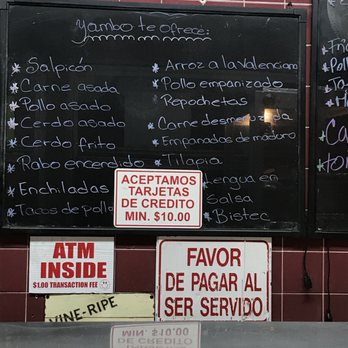 Yambo te ofrece:
Salpicón
Carne asada
Pollo asado
Cerdo asado
Cerdo frito
Rabo encendido
Enchiladas
Tacos de pollo
Arroz a la Valenciana
Pollo empanizado
Repochetas
Carne desmenuzada
Empanadas de maduro
Tilapia
Lengua en
Salsa
Bistec
ACEPTAMOS
TARJETAS
DE CREDITO
MIN. $10.00
ATM
INSIDE
$1.00 TRANSACTION FEE
VINE-RIPE
FAVOR
DE PAGAR AL
SER SERVIDO
MIN. $10.00